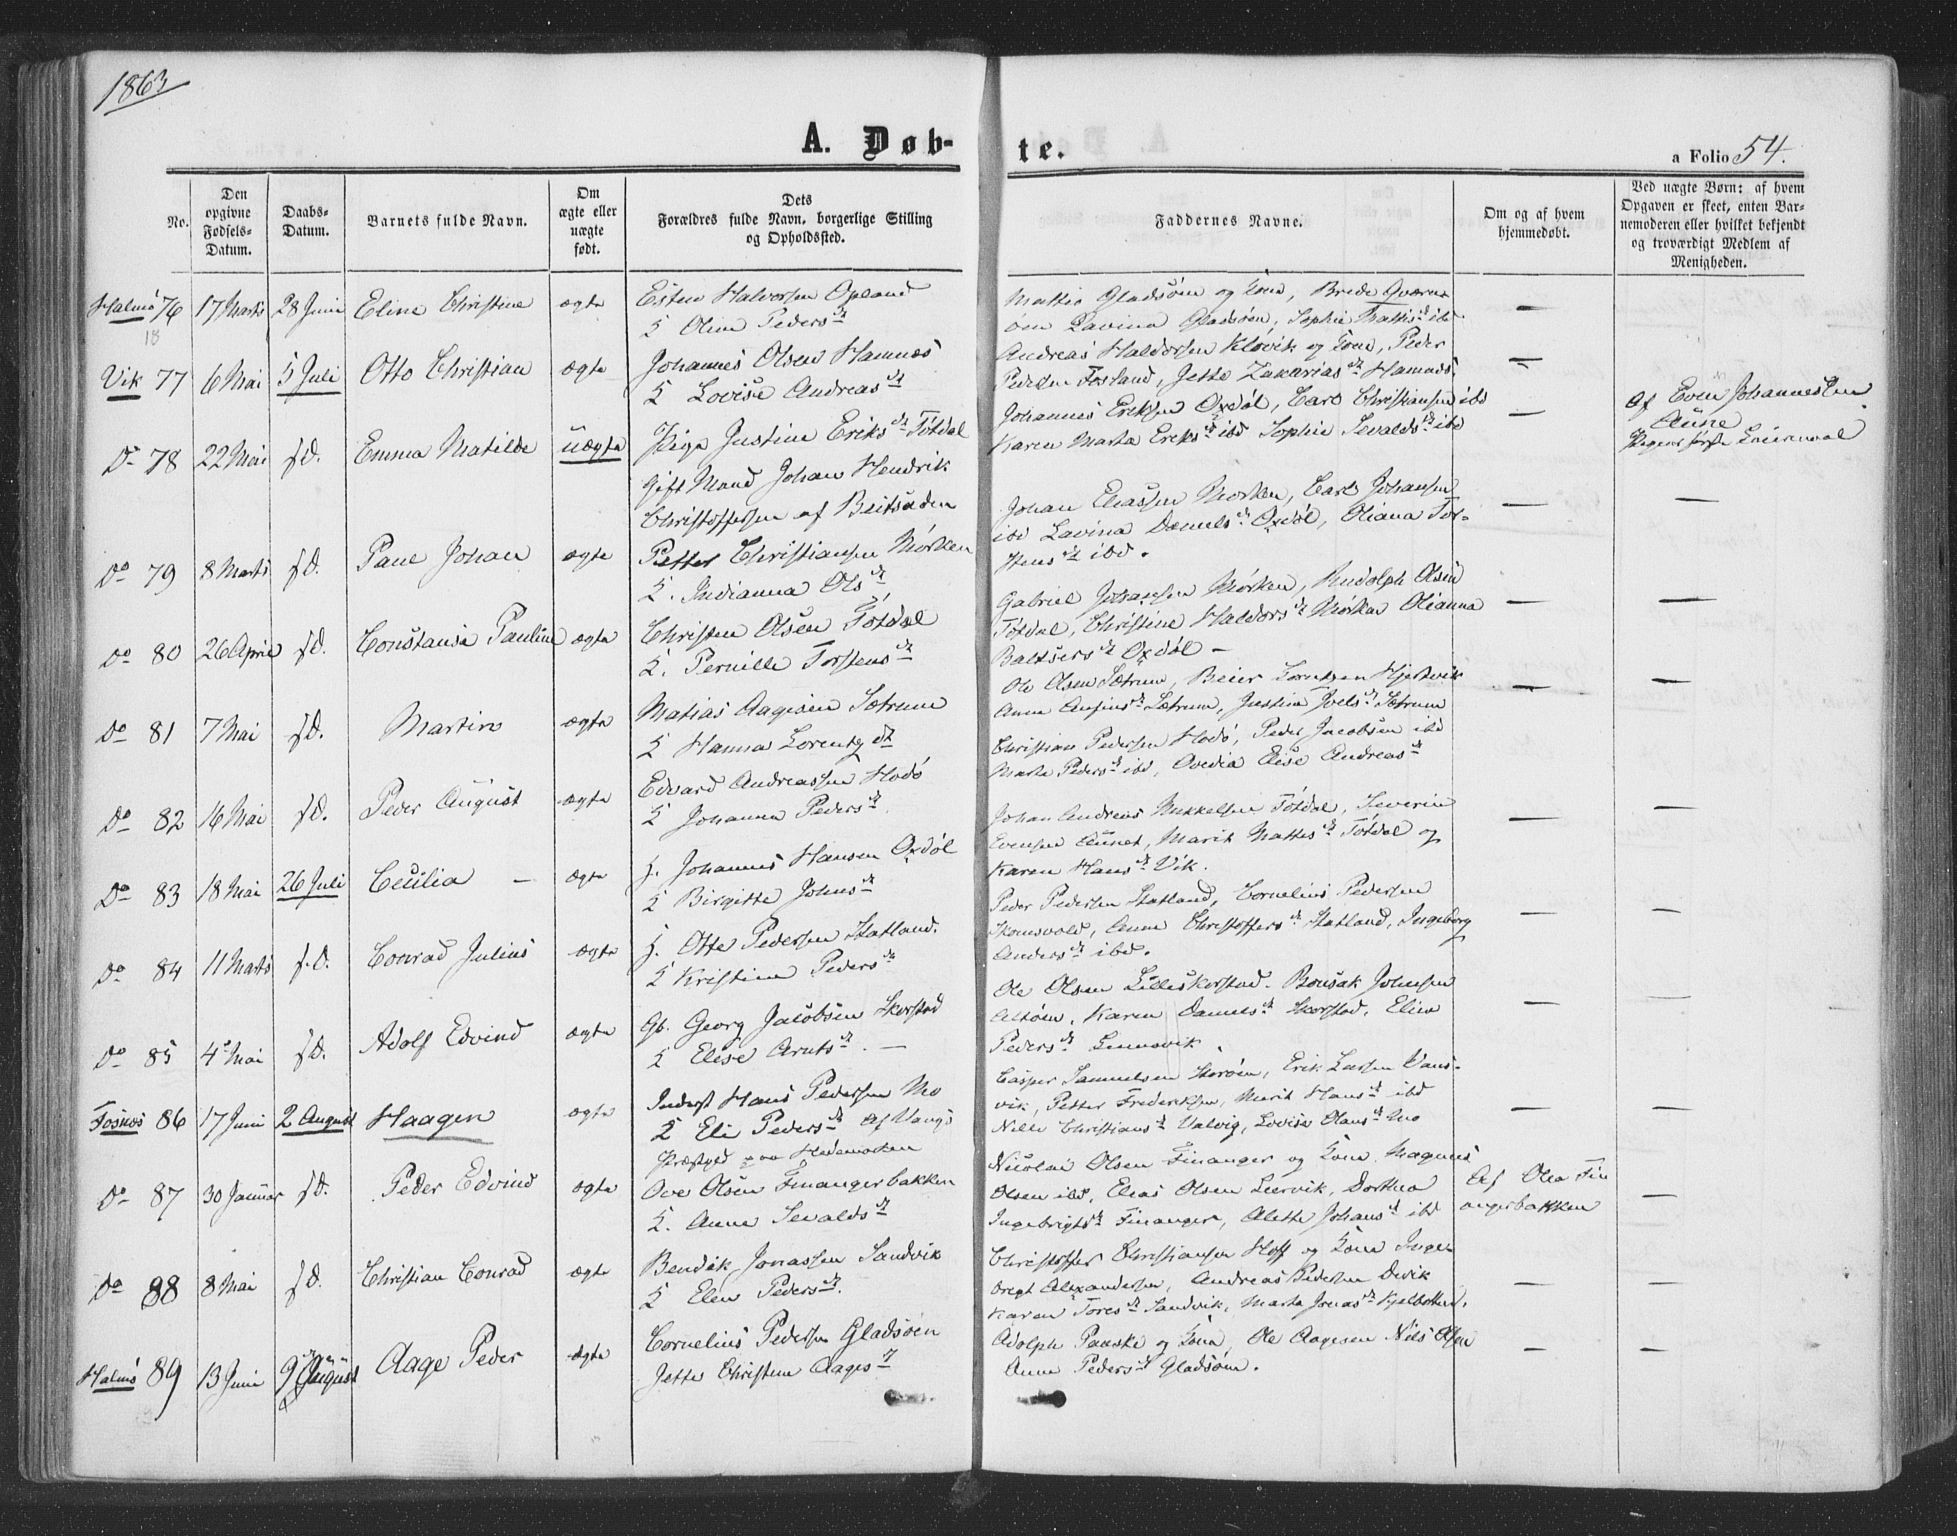 1863
A. Døb-
te.
a Folio 54.
No.
Den opgivne Fødsels-Datum.
Daabs-Datum.
Barnets fulde Navn.
Om ægte eller uægte født.
Dets Forældres fulde Navn, borgerlige Stilling og Opholdssted.
Faddernes Navne.
Om og af hvem hjemmedøbt.
Ved uægte Børn: af hvem Opgaven er skeet, enten Barnemoderen eller hvilket bekjendt og troværdigt Medlem af Menigheden.
Halmö 76 17 Marts 28 Juni Eline Christine ægte Esten Halvorsen Opland
Oline Peders dt
Mattis Gladsöen og Kone, Brede
Lavina Gladsöen, Sophie ibd
18
Vik 77 6 Mai 5 Juli Otto Christian ægte Johannes Olsen Hamnæs
Lovise Andreas dt
Andreas Haldorsen Klövik og Kone, Peder
Pedersen Fosland, Jette Zakarias dt Hamnæs
Do 78 22 Mai s.D. Emma Matilde uægte Pige Justine Eriks dt Tötdal
gift Mand Johan Hendrik
Christoffersen af Beitstaden
Johannes Eriksen Oxdöl, Carl Christiansen ibd
Karen Marta Eriks dt ibd Sophie Sevalds dt ibd
Af Even Johannessen
Aune
Do 79 8 Marts s.D. Paul Johan ægte Petter Christiansen Mörken
Indianna Ols dt
Johan Eliassen Mörken, Carl Johansen
ibd Lavina Daniels dt Oxdöl, Oliana Tor-
stens dt ibd.
Do 80 26 April s.D. Constanse Pauline ægte Christen Olsen Tötdal
Pernille Torstens dt
Gabriel Johansen Mörken, Rudolph Olsen
Tötdal, Christine Haldors dt Mörken Olianna
Baltsers dt Oxdöl -
Do 81 7 Mai s.D. Martin ægte Matias Aagesen Sætrum
Hanna Lorentz dt
Ole Olsen Sætrum, Beier Lorntzen
Anne dt Sætrum, Justina Joels dt Sætrum
Do 82 16 Mai s.D. Peder August ægte Edvard Andreassen Hodö
Johanna Peders dt
Christian Pedersen Hodö, Peder Jacobsen ibd
Marta Peders dt ibd, Ovedia Elise Andreas dt
Do 83 18 Mai 26 Juli Cecilia - ægte Johannes Hansen Oxdöl
Birgitte Johns dt
Johan Andreas Mikkelsen Tötdal, Severin
Evensen Aunet, Marit Mattis dt Tötdal og
Karen Hans dt Vik.
Do 84 11 Marts s.D. Conrad Julius ægte Otte Pedersen Statland.
Kristine Peders dt
Peder Pedersen Statland, Cornelius Pedersen
Anne Christoffers dt Statland, Ingeborg
Anders dt ibd.
Do 85 4 Mai s.D. Adolf Edvind ægte Gb. Georg Jacobsen Skorstad
Elise Arnts dt -
Ole Olsen Lilleskorstad. Bonsak Johnsen
Altöen, Karen Daniels dt Skorstad, Elen
Peders dt
Fosnæs 86 17 Juni 2 August Haagen ægte Inderst Hans Pedersen Mo
Eli Peders dt Af Vangs
Præstgjeld paa Hedemarken
Casper Samuelsen Storöen, Erik Larsen Vans-
vik, Petter Frederiksen, Marit Hans dt ibd
Nille Christians dt Valvig, Lovise Olaus dt Mo
Do 87 30 Januar s.D. Peder Edvind ægte Ove Olsen Finangerbakken
Anne Sevalds dt
Nicolai Olsen Finanger og Kone Magnus
Olsen ibd, Elias Olsen Leervik, Dorthea
Ingebrigts dt Finanger, Alette Johans dt ibd
Af Olea Fin
angerbakken
Do 88 8 Mai s.D. Christian Conrad ægte Bendik Jonassen Sandvik
Elen Peders dt.
Christoffer Christiansen Hoff og Kone Inge-
bregt Alexandersen, Andreas Pedersen Devik
Karen Tores dt Sandvik, Marta Jonas dt Kjelbotten.
Halmö 89 13 Juni 9 August Aage Peder ægte Cornelius Pedersen Gladsöen
Jette Christine Aages dt
Adolph Paaske og Kone, Ole Aagesen Nils Olsen
Anne Peders dt Gladsöen.